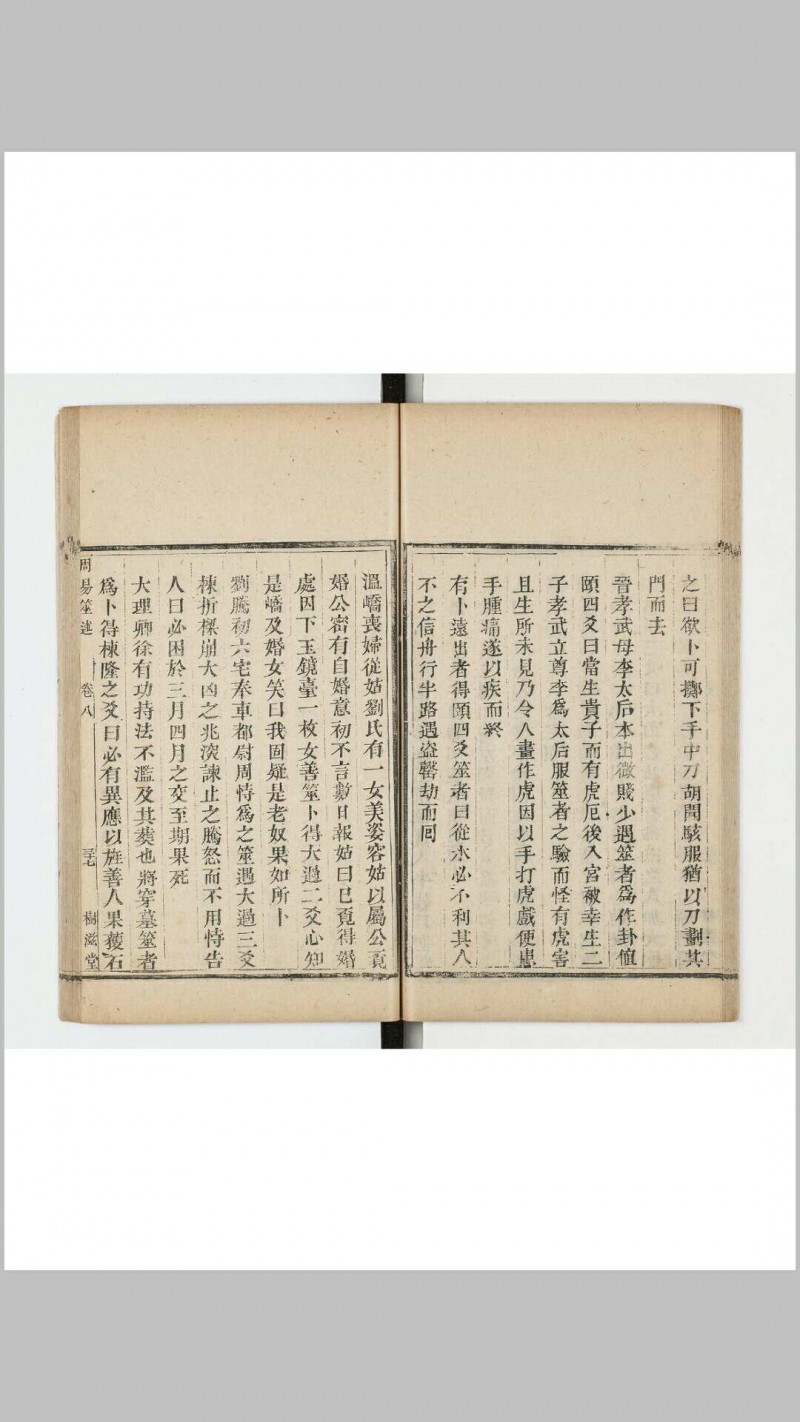 之曰欲卜可擲下手中刀胡聞駭服猶以刀劃其
門而去
晉孝武母李太后本出微賤少遇筮者爲作卦值
頤四爻曰當生貴子而有虎厄後入宮被幸生二
子孝武立尊李爲太后服筮者之驗而怪有虎害
且生所未見乃令人畫作虎因以手打虎戲便患
手腫痛遂以疾而終
有卜遠出者得頤四爻筮者曰從水必不利其人
不之信舟行半路遇盜罄劫而囘
溫嶠喪婦從姑劉氏有一女美姿容姑以屬公覔
婚公密有自婚意初不言數日報姑曰已覔得婚
處因下玉鏡臺一枚女善筮卜得大過二爻心知
是嶠及婚女笑曰我固疑是老奴果如所卜
劉騰初六宅奉車都尉周恃爲之筮遇大過三爻
棟折榱崩大凶之兆深諫止之騰怒而不用恃告
人曰必困於三月四月之交至期果死
大理卿徐有功持法不濫及其葬也將穿墓筮者
爲卜得棟隆之爻曰必有異應以旌善人果穫石
周易筮述 卷八 三七 樹滋堂